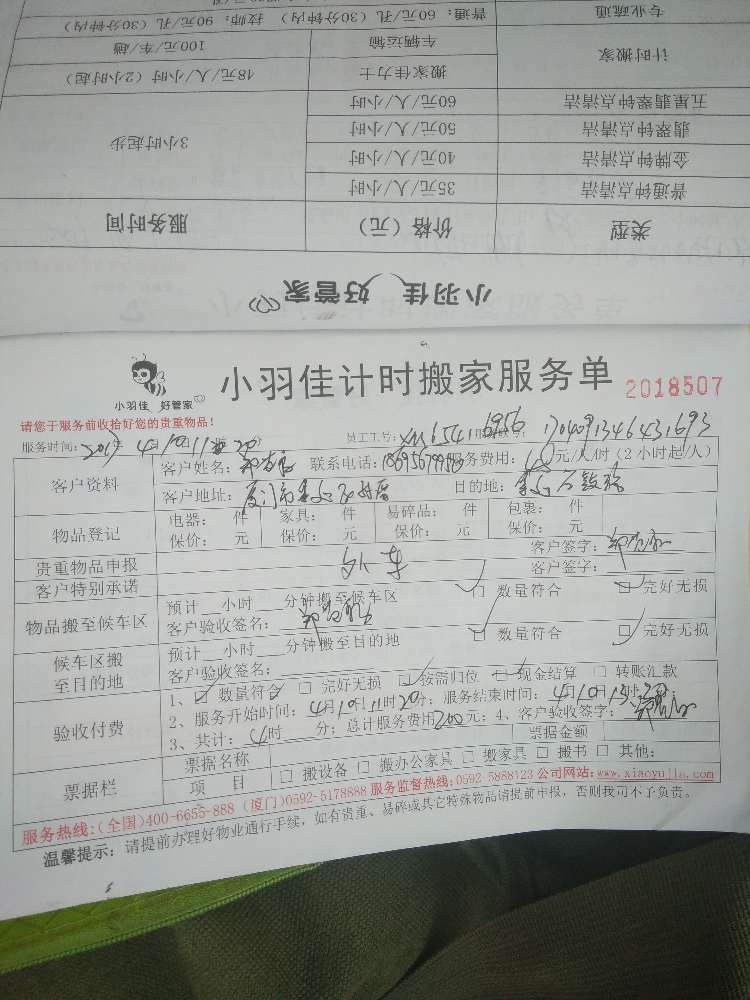 小羽佳 好管家
类型 价格（元） 服务时间
普通钟点清洁 35元/人/小时
金牌钟点清洁 40元/人/小时 3小时起步
翡翠钟点清洁 50元/人/小时
五星翡翠钟点清洁 60元/人/小时
计时搬家 搬家佳力士 48元/人/小时（2小时起）
车辆运输 100元/车/趟
专业疏通 普通：60元/孔（30分钟内） 技师：90元/孔（30分钟内）
小羽佳 好管家
小羽佳计时搬家服务单 2018507
请您于服务前收拾好您的贵重物品！
服务时间： 4月10日11时20 员工工号： 1704091346431693
客户资料 客户姓名： 联系电话： 服务费用： 元/人/时（2小时起/人）
客户地址： 目的地：
物品登记 电器： 件 家具： 件 易碎品： 件 包裹： 件
保价： 元 保价： 元 保价： 元 保价： 元
贵重物品申报 客户签字：
客户特别承诺 客户签字：
物品搬至候车区 预计 小时 分钟搬至候车区 数量符合 完好无损
客户验收签名：
候车区搬至目的地 预计 小时 分钟搬至目的地 数量符合 完好无损
客户验收签名：
验收付费 1、 数量符合 完好无损 按需归位 现金结算 转账汇款
2、服务开始时间：4月10日11时20分；服务结束时间：4月10日13时20分；
3、共计：4时 分；总计服务费用200元；4、客户验收签字：
票据栏 票据名称 票据金额
项 目 搬设备 搬办公家具 搬家具 搬书 其他：
服务热线：（全国）400-6655-888（厦门）0592-5178888 服务监督热线：0592-5888123 公司网站：www.xiaoyujia.com
温馨提示：请提前办理好物业通行手续，如有贵重、易碎或其它特殊物品请提前申报，否则我司不予负责。